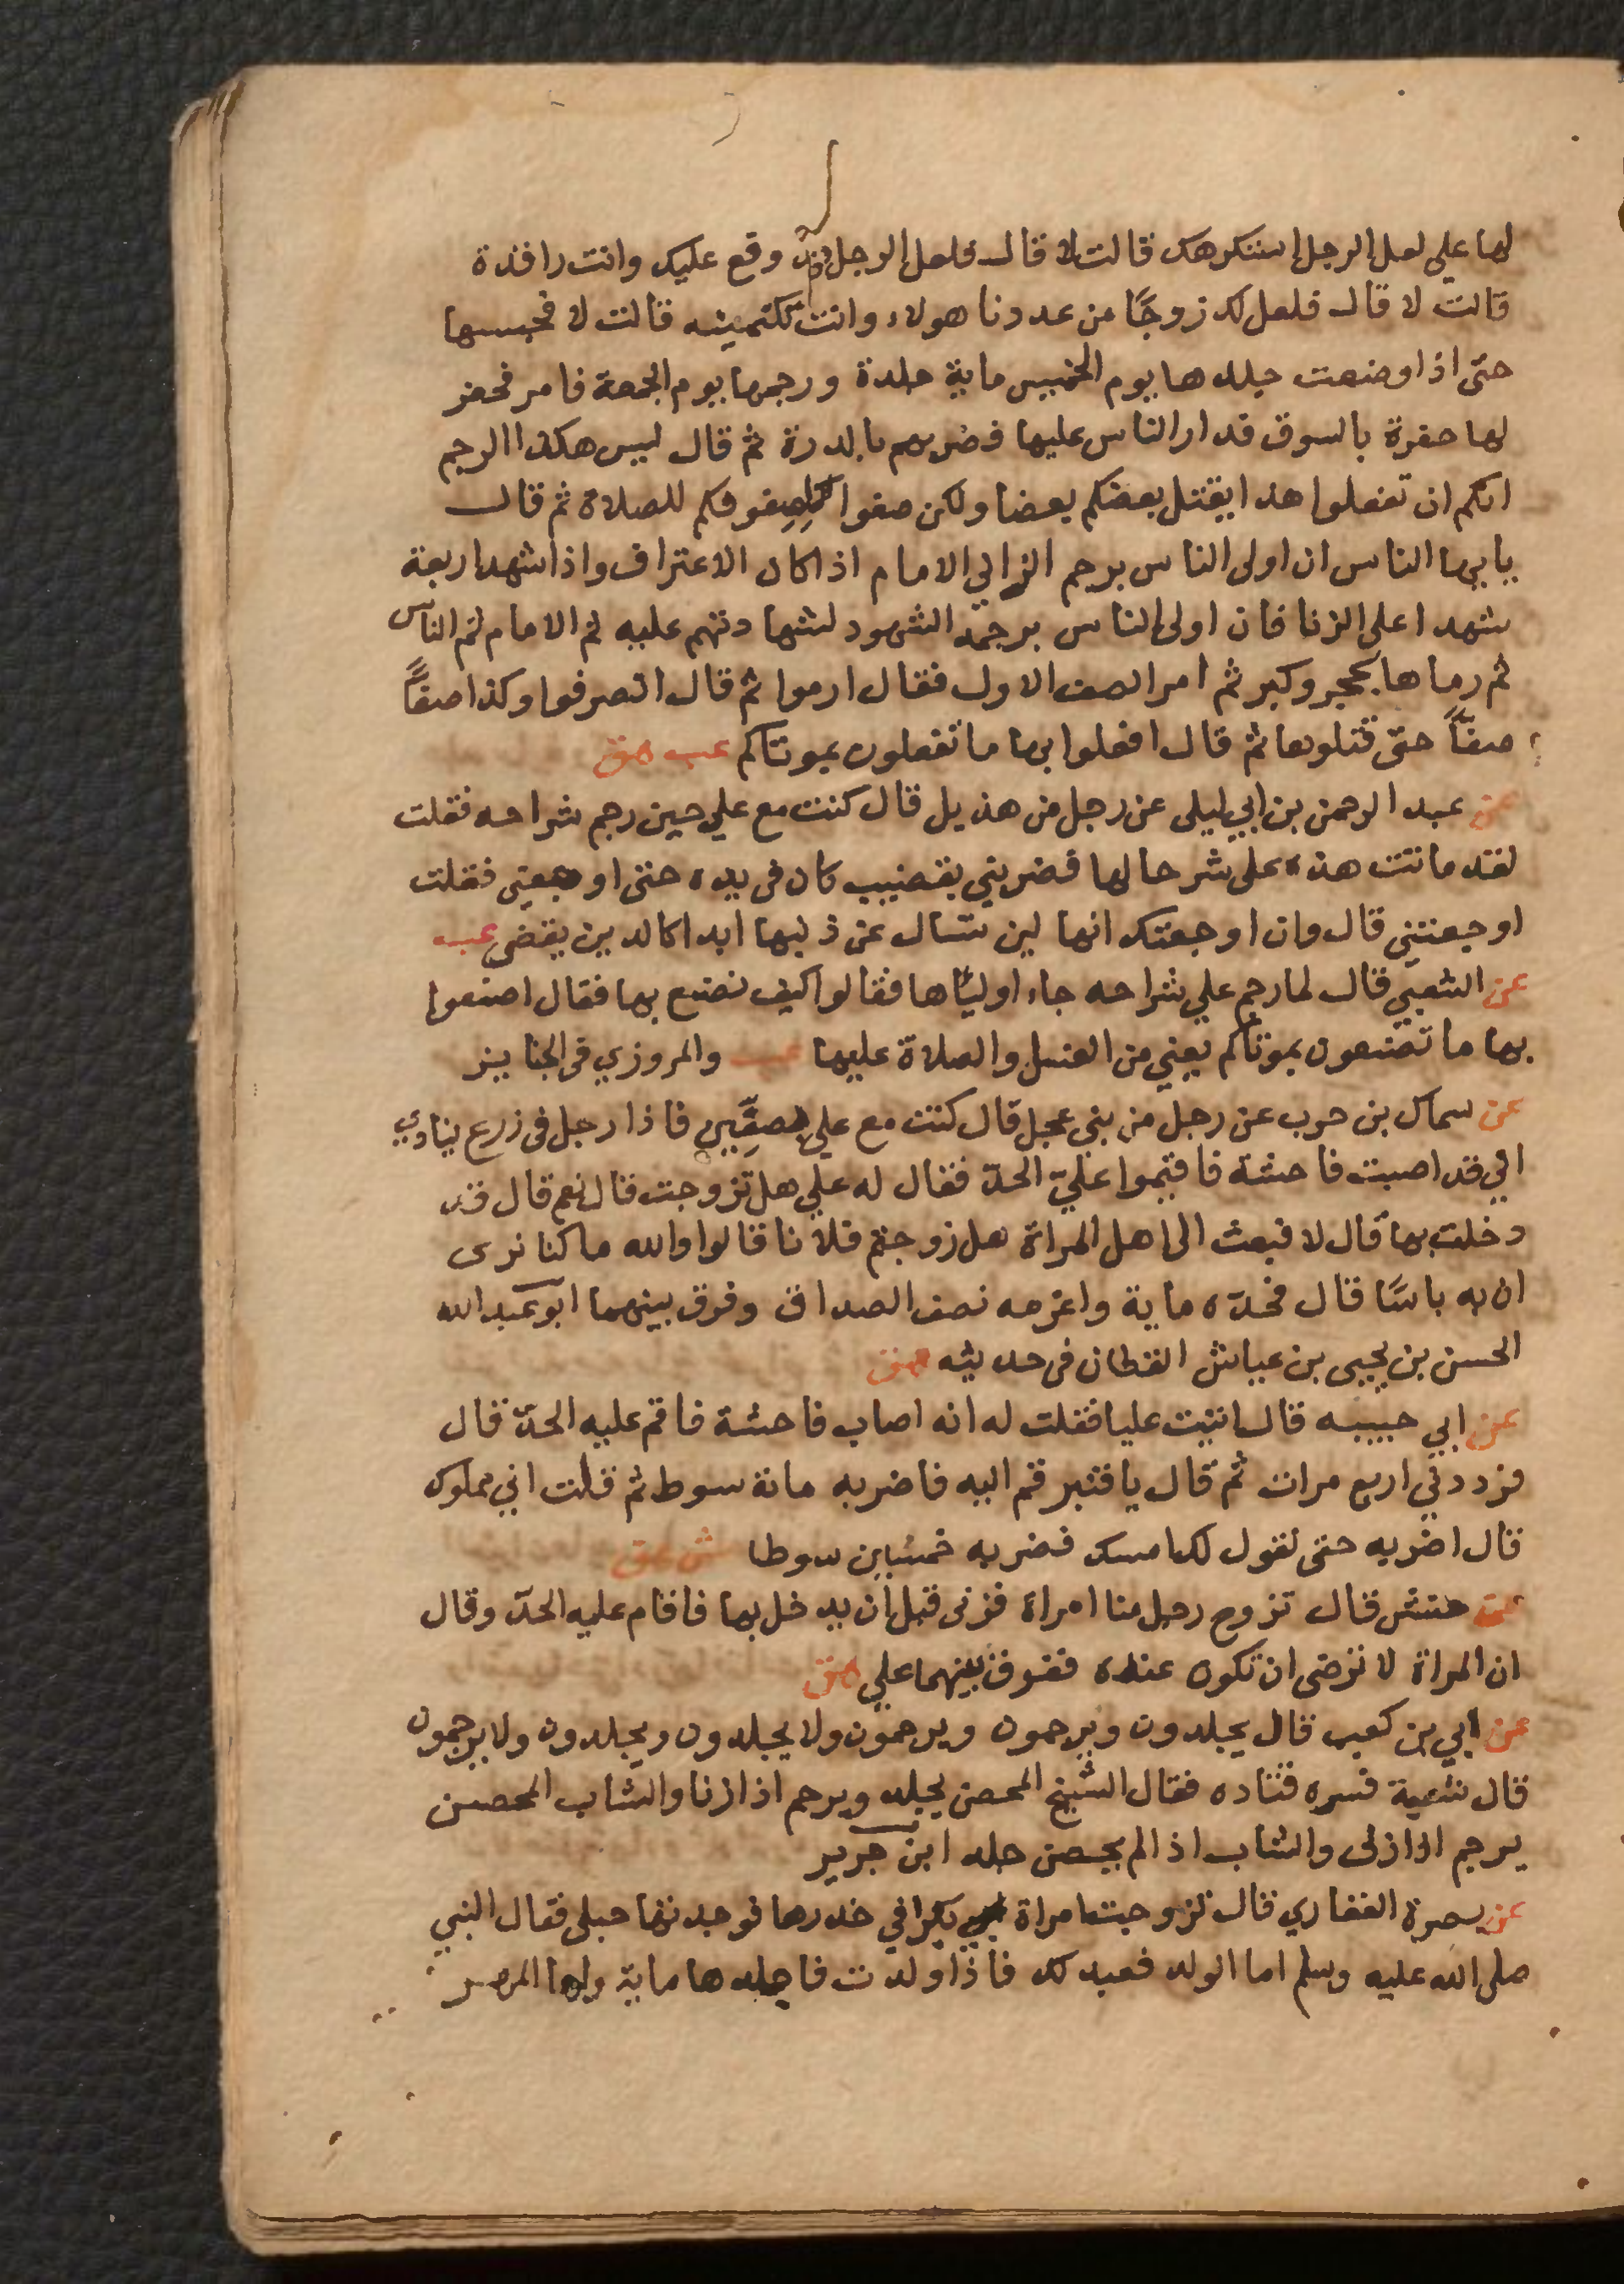 لها علي لعل الرجل استنكرهك قالت لا قال فلعل الرجل قد وقع عليك وانت راقدة
قالت لا قال فلعل لك زوجًا من عدونا هولاء وانت تكتمينه قالت لا فحبسها
حتى اذا وضعت جلدها يوم الخميس ماية جلدة ورجمها يوم الجمعة فامر فحفر
لها حفرة بالسوق فدار الناس عليها فضربهم بالدرة ثم قال ليس هكذا الرجم
انكم ان تفعلوا هذا يقتل بعضكم بعضا ولكن صفوا كصفوفكم للصلاة ثم قال
يايها الناس ان اولى الناس يرجم الزاني الامام اذا كان الاعتراف واذا شهد اربعة
شهدا على الزنا فان اولى الناس يرجمه الشهود لشهادتهم عليه ثم الامام ثم الناس
ثم رماها بحجر وكبر ثم امر الصف الاول فقال ارموا ثم قال انصرفوا وكذا صفًّا
صفًّا حتى قتلوها ثم قال افعلوا بها ما تفعلون بموتاكم عب هق
عن عبد الرحمن بن ابي ليلى عن رجل من هذيل قال كنت مع علي حين رجم شراحه فقلت
لقد ماتت هذه على شر حالها فضربني بقضيب كان في يده حتى اوجعني فقلت
اوجعتني قال وان اوجعتك انها لن تسال عن ذنبها ابدا كالدين يقضى عب
عن الشعبي قال لما رجم علي شراحه جاء اولياها فقالوا كيف نصنع بها فقال اصنعوا
بها ما تصنعون بموتاكم يعني من الغسل والصلاة عليها عب والمروزي في الجنايز
عن سماك بن حرب عن رجل من بني عجل قال كنت مع علي بصفين فاذا رجل في زرع ينادي
اني قد اصبت فاحشة فاقيموا عليّ الحدّ فقال له علي هل تزوجت قال نعم قال قد
دخلت بها قال لا فبعث الى اهل المراة هل زوجتم فلانا قالوا والله ما كنا نرى
ان به باسًا قال فحدّه ماية واغرمه نصف الصداق وفرق بينهما ابو عبد الله
الحسن بن يحيى بن عياش القطان في حديثه هق
عن ابي حبيبه قال اتيت عليا فقلت له انه اصاب فاحشة فاقم عليه الحدّ قال
فرددني اربع مرات ثم قال يا قنبر قم اليه فاضربه مائة سوط ثم قلت اني مملوك
قال اضربه حتى تقول لك امسك فضربه خمسين سوطا ش هق
عن حنش قال تزوج رجل منا امراة فزنى قبل ان يدخل بها فاقام عليه الحدّ وقال
ان المراة لا ترضى ان تكون عنده ففرق بينهما علي هق
عن ابي بن كعب قال يجلدون ويرجمون ويرجمون ولا يجلدون ويجلدون ولا يرجمون
قال شعبة فسره قتاده فقال الشيخ المحصن يجلد ويرجم اذا زنا والشاب المحصن
يرجم اذا زنى والشاب اذا لم يحصن جلد ابن جرير
عن بصرة الغفاري قال تزوجت امراة بكرا في خدرها فوجدتها حبلى فقال النبي
صلى الله عليه وسلم اما الولد فعبد لك فاذا ولدت فاجلدها ماية ولها المهر